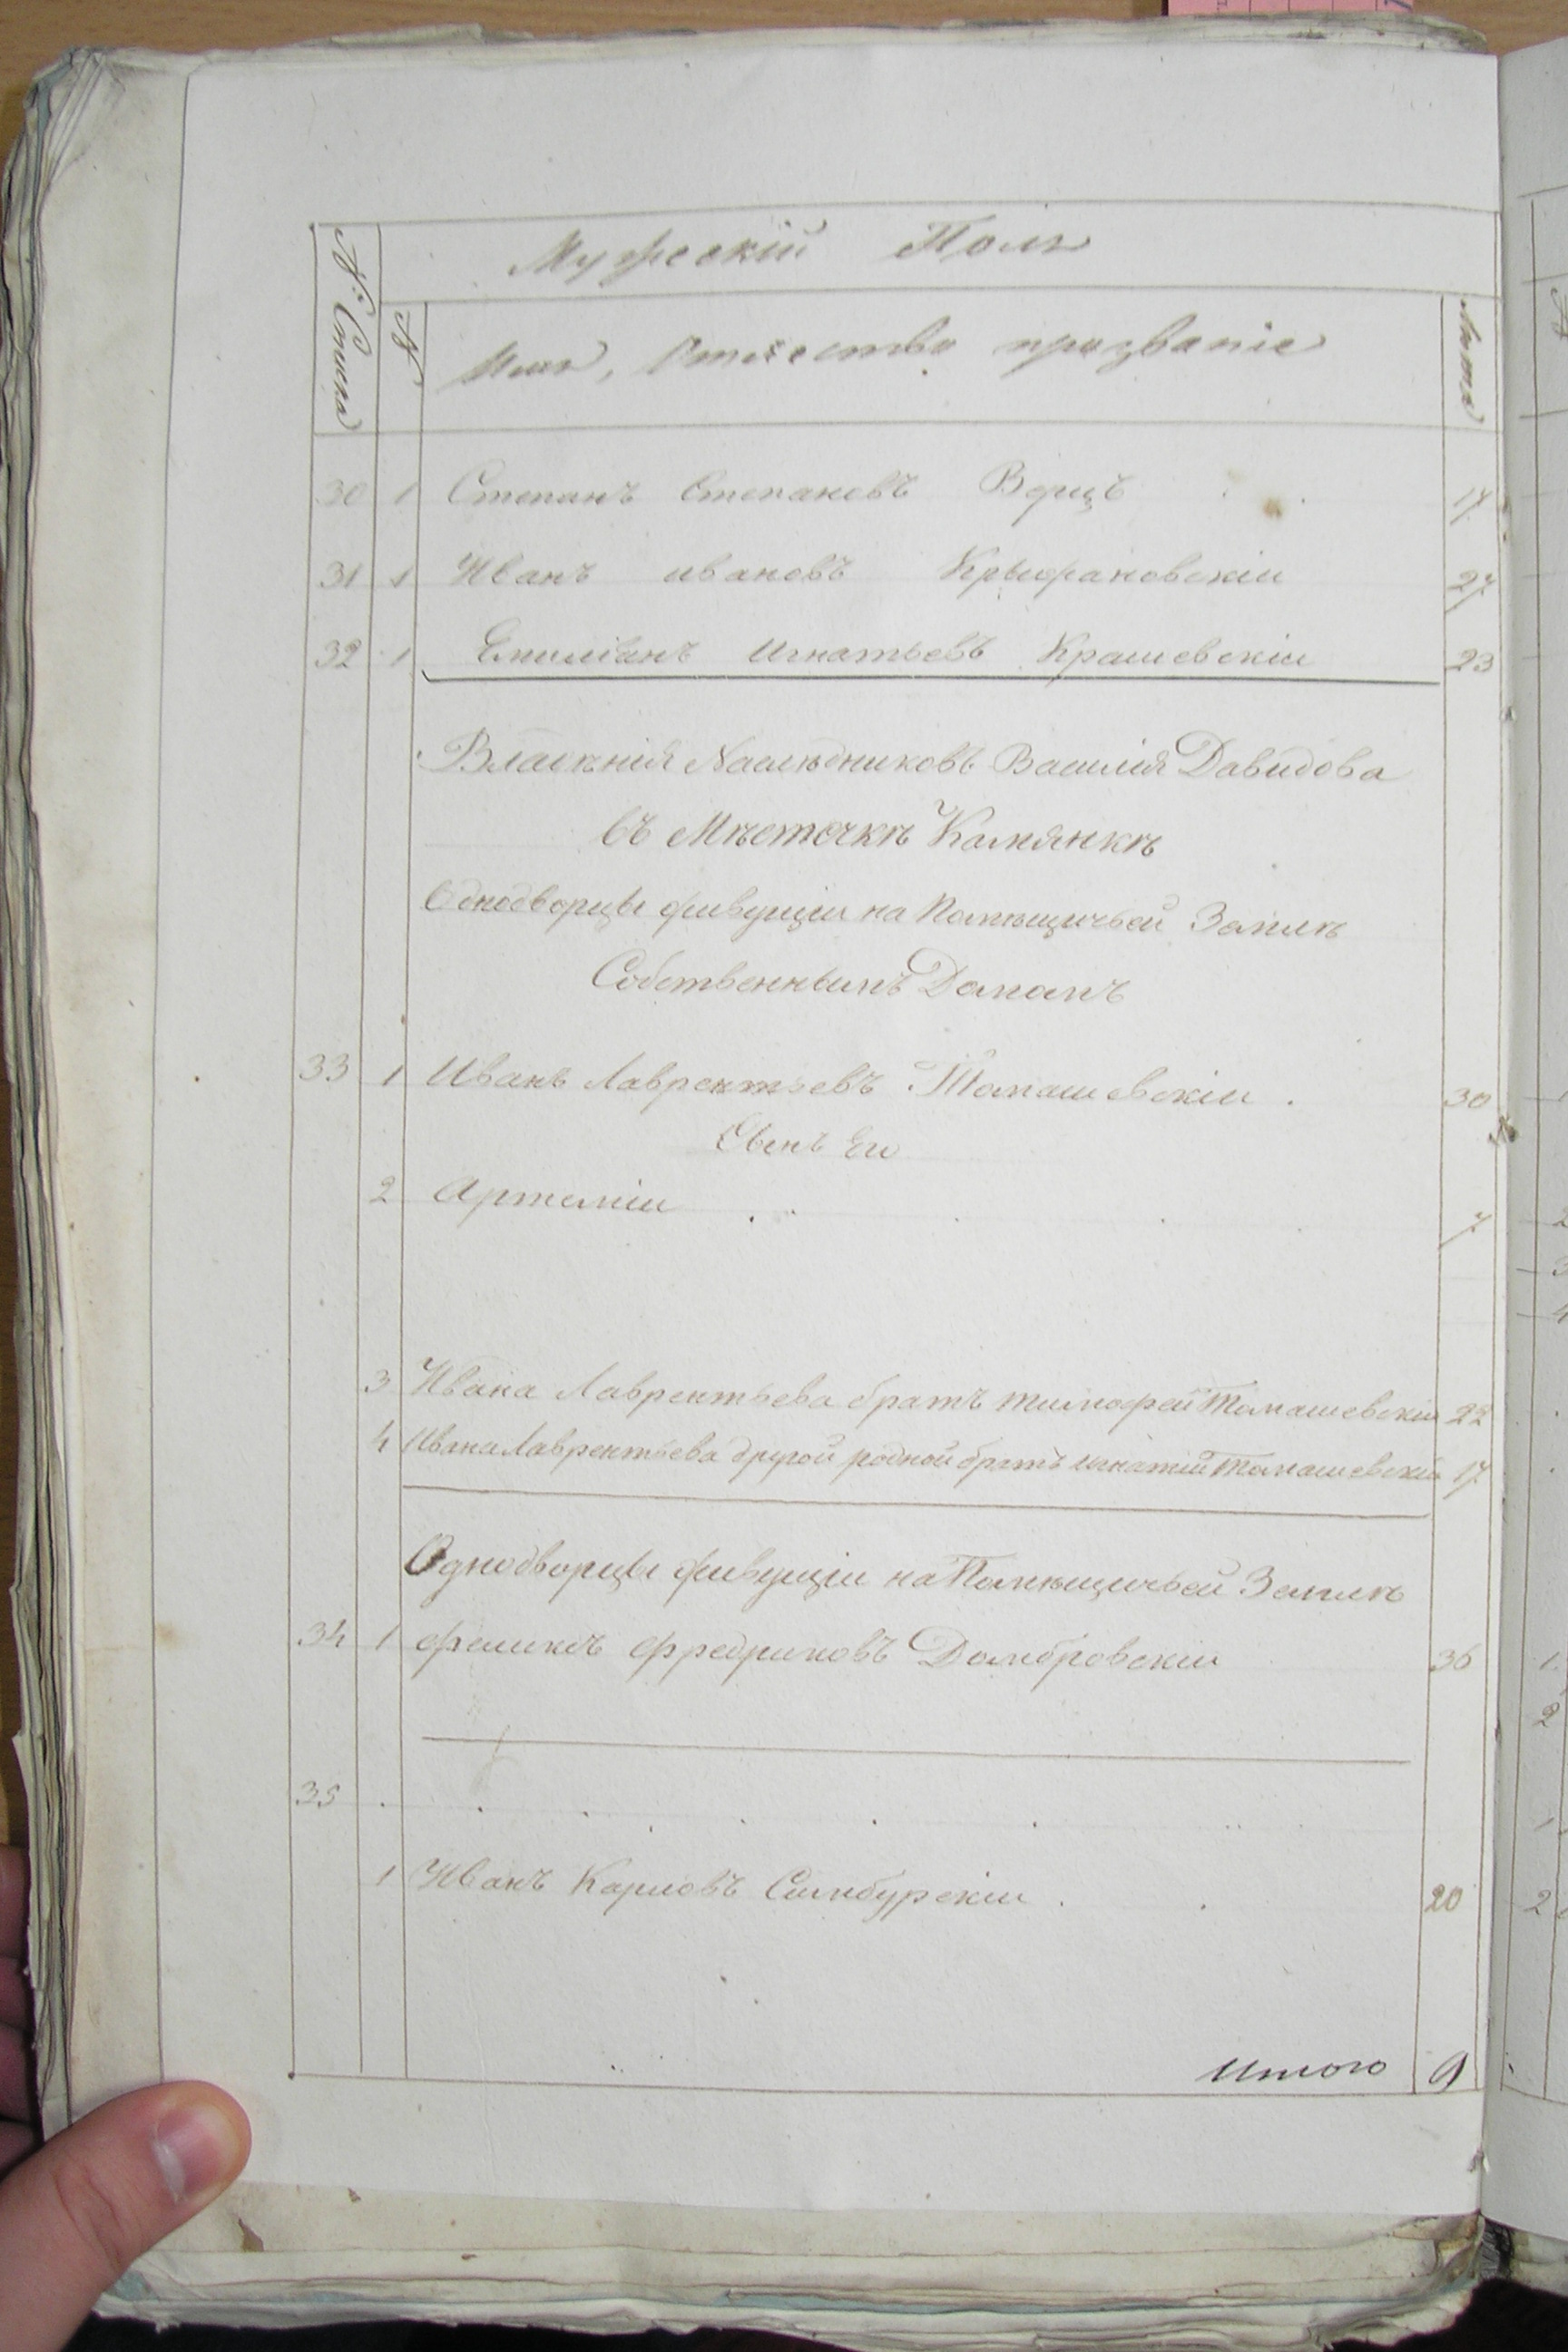 Мужескій Полъ
№ Списка
№
Имя, Отчество прозваніе
Лета
30 1 Степанъ Степановъ Ворцъ 17
31 1 Иванъ ивановъ Крыжановскіи 27
32 1 Емиліянъ Игнатьевъ Крашевскіи 23
Владенія Наследниковъ Василія Давидова
въ Мѣсточкѣ Камянкѣ
Однодворцы живущіи на Помѣщичьей Землѣ
Собственнымъ Домомъ
33 1 Иванъ Лаврентьевъ Томашевскіи 30
Сынъ Его
2 Артеміи 7
3 Ивана Лаврентьева братъ тимофей Томашевскіи 22
4 Ивана Лаврентьева другой родной братъ игнатій Томашевскій 17
Однодворцы живущіи на Помѣщичьей Землѣ
34 1 Феликсъ Фредриковъ Домбровскіи 36
35
1 Иванъ Карловъ Симбурскіи 20
Итого 9